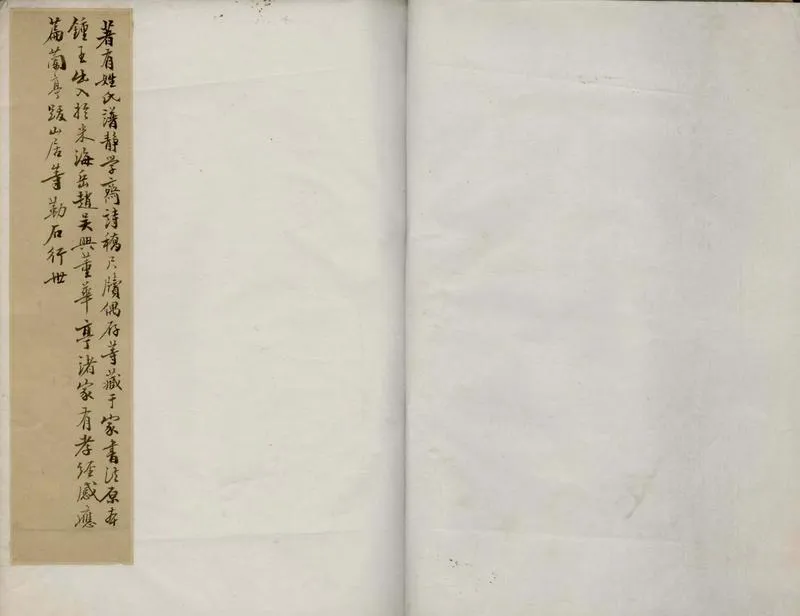 著有姓氏譜静学齋詩稿尺牘偶存等藏于家書法原本
鍾王出入於米海岳趙吴興董華亭諸家有孝經感應
篇蘭亭跋山居等勒石行世